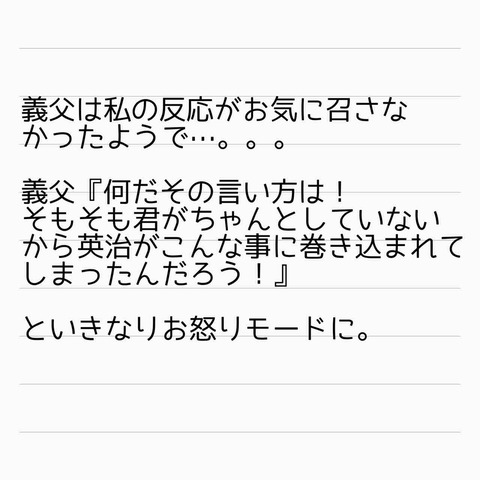 義父は私の反応がお気に召さな
かったようで…。。。
義父『何だその言い方は！
そもそも君がちゃんとしていない
から英治がこんな事に巻き込まれて
しまったんだろう！』
といきなりお怒りモードに。